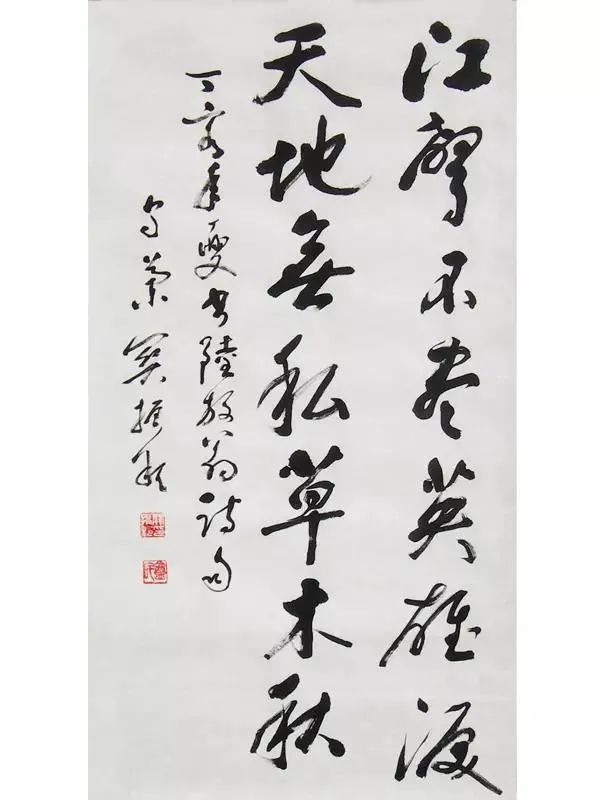 江聲不盡英雄淚
天地無私草木秋
丁亥年夏書陸放翁詩句
振